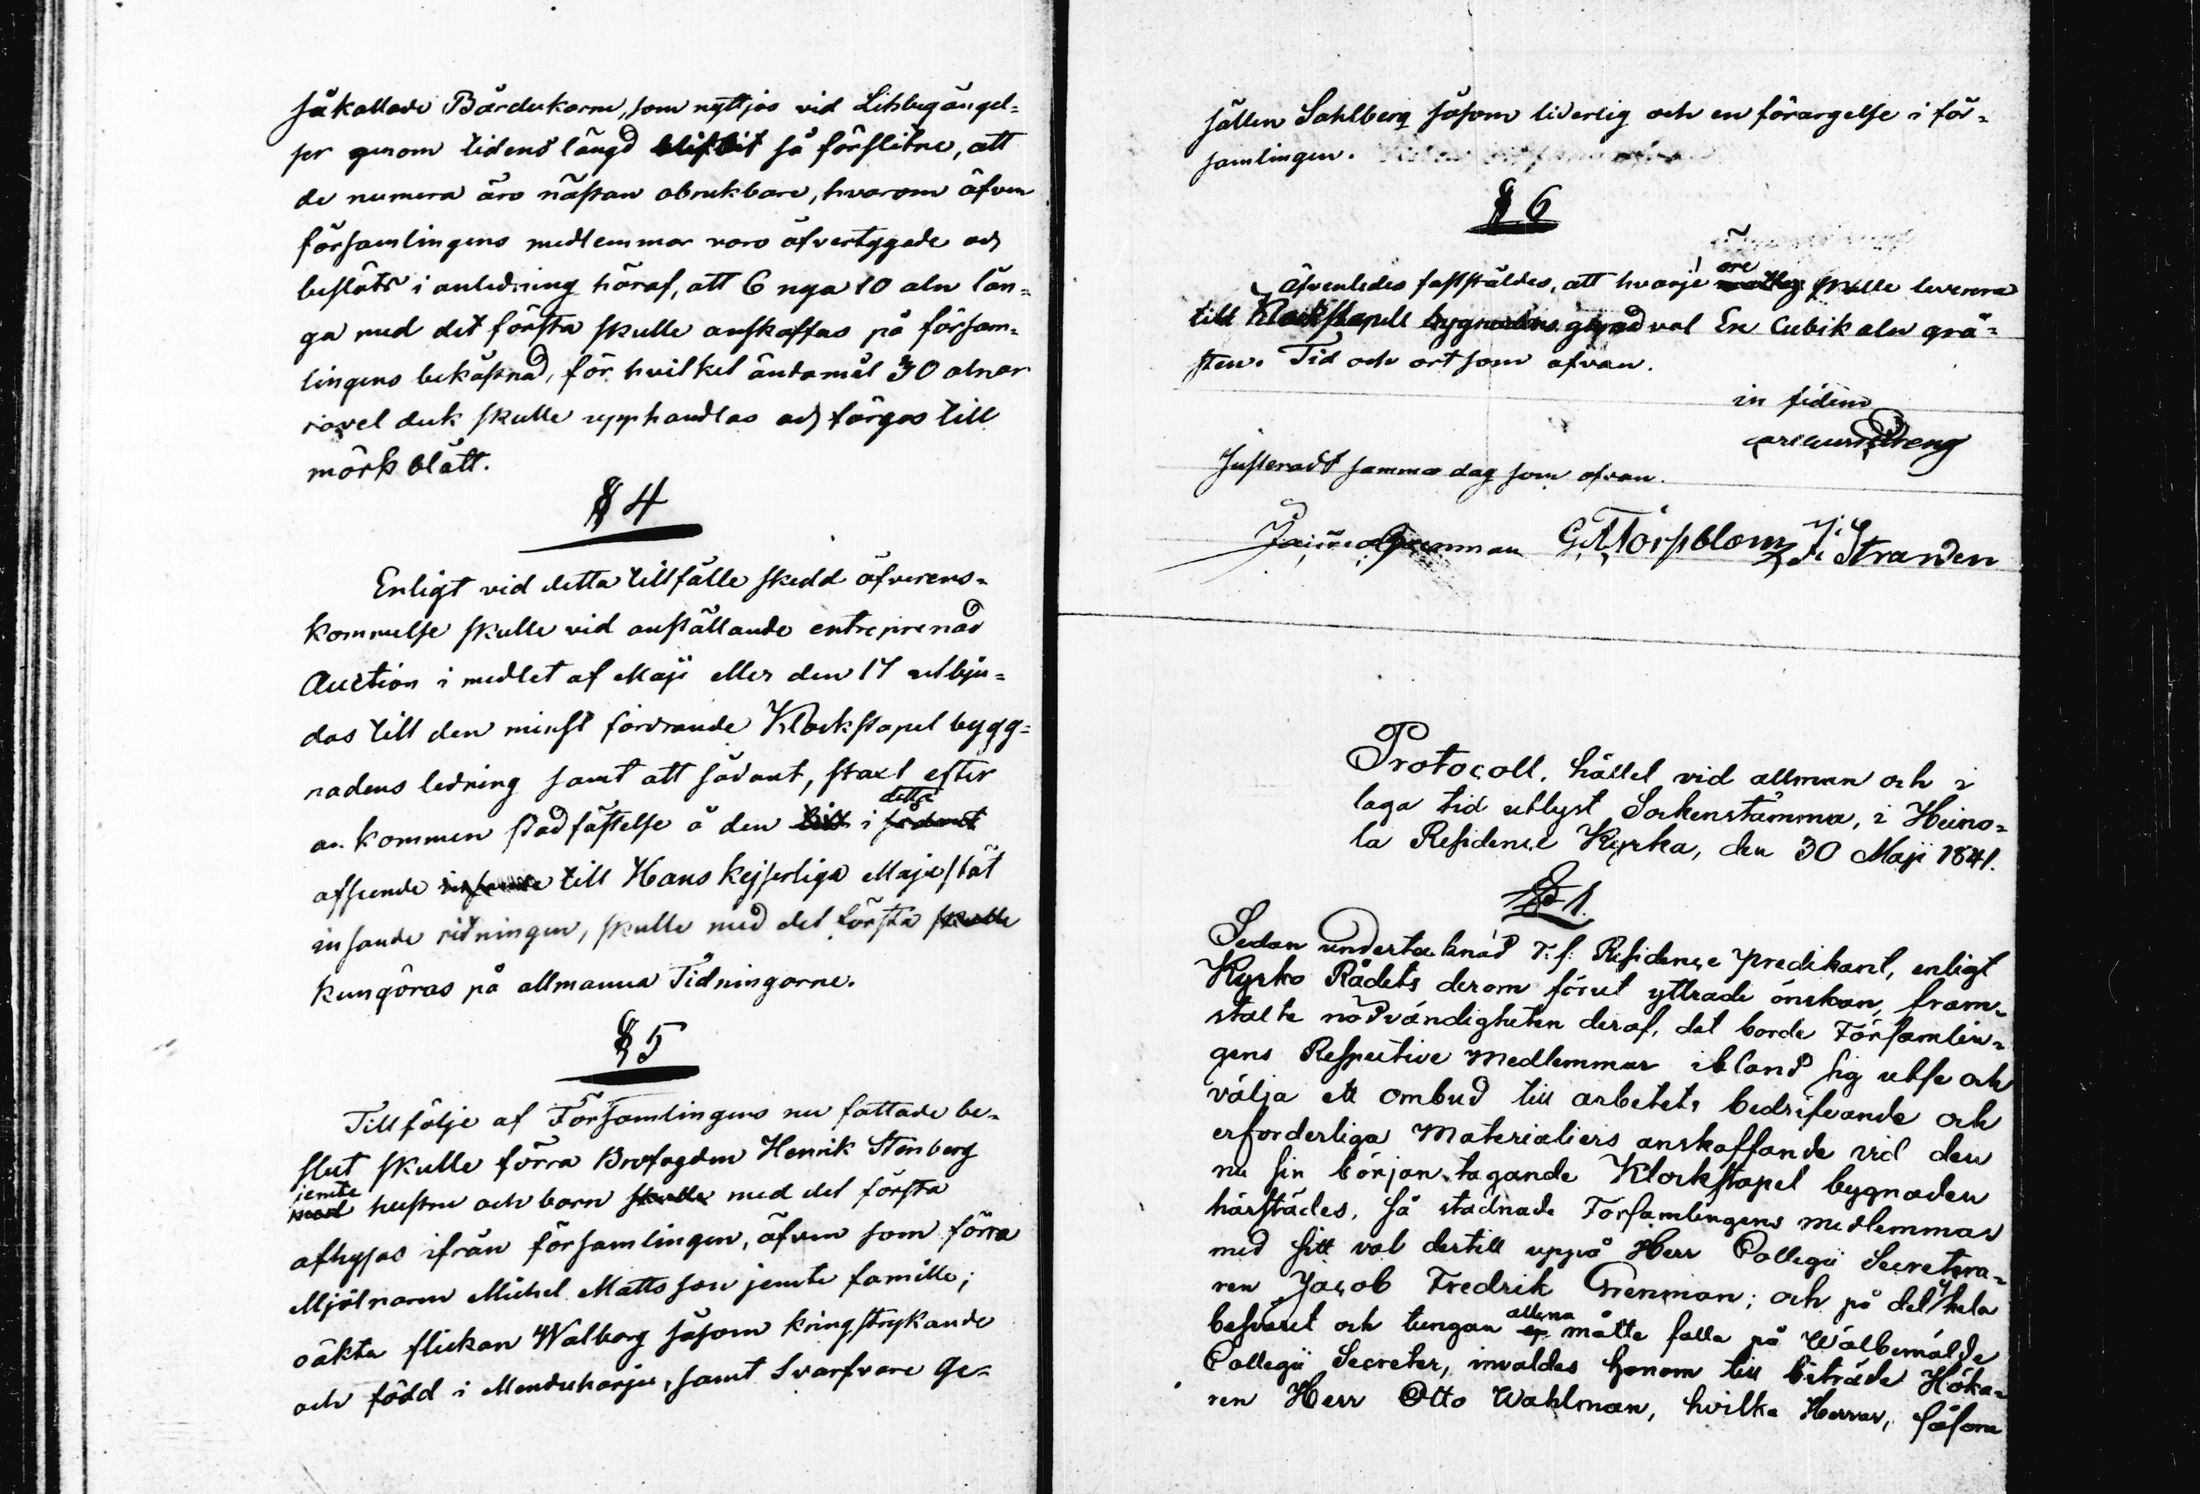 såkallade Bårdukarne, som nyttjas vid Likbegängel-
ser genom tidens längd blifvit så förslitne, att
de numera äro nästan obrukbare, hvarom äfven
församlingens medlemmar voro öfvertygade och
beslöts i anledning häraf, att 6 nya 10 aln lån-
ga med det första skulle anskaffas på försam-
lingens bekåstnad, för hvilket ändamål 30 alnar
ravel duk skulle upphandlas och färgas till
mörk blått.
§ 4
Enligt vid detta tillfälle skedd öfverens-
kommelse skulle vid anställande entreprenad
Auction i medlet af Maji eller den 17 utbju-
das till den minst fordrande Klockstapel bygg-
nadens ledning samt att sådant, straxt efter
an kommen stadfästelse å den i detta
afseende till Hans Kejserliga Majestät
insände ritningen, skulle med det första skulle
kungöras på allmänna Tidningarne.
§ 5
Till följe af Församlingens nu fattade be-
slut skulle förra Brofogden Henrik Stenberg
jemte hustru och barn skulle med det första
afhysas ifrån församlingen, äfven som förra
Mjölnaren Michel Mattsson jemte famille;
oäkta flickan Walborg såsom kringstrykande
och född i Menduharju, samt Svarfvare Ge-
sällen Sahlberg såsom liderlig och en förargelse i för-
samlingen.
§ 6
Äfvenledes fastställdes, att hvarje öre skulle leverera
till Klockstapels bygnadens grundval En Cubik aln grå-
sten. Tid och ort som ofvan.
in fidem
Justeradt samma dag som ofvan.
Grenman G. A. Törnblom J. Stranden
Protocoll, hållet vid allmän och i
laga tid utlyst Sockenstämma, i Heino-
la Residence Kyrka, den 30 Maji 1841.
§ 1.
Sedan undertecknad T. f. Residence predikant, enligt
Kyrko Rådets derom förut yttrade önskan, fram-
stälte nödvändigheten deraf, det borde Församlin-
gens Respective Medlemmar ibland sig utse och
välja ett ombud till arbetets bedrifvande och
erforderliga Materialiers anskaffande vid den
nu sin början tagande Klockstapel bygnaden
härstädes, så stadnade Församlingens medlemmar
med sitt val dertill uppå Herr Collegii Secretera-
ren Jacob Fredrik Grenman; och på det ej hela
besväret och tungan allena måtte falla på Wälbemälde
Collegii Secreter, invaldes honom till biträde Höka-
ren Herr Otto Wahlman, hvilka Herrar, såsom